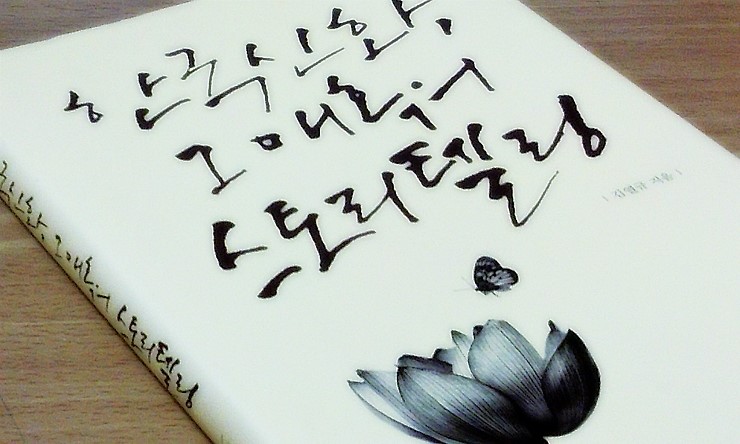 한국신화,
그 매혹의
스토리텔링
| 김열규 지음 |
국신화, 그 매혹의 스토리텔링